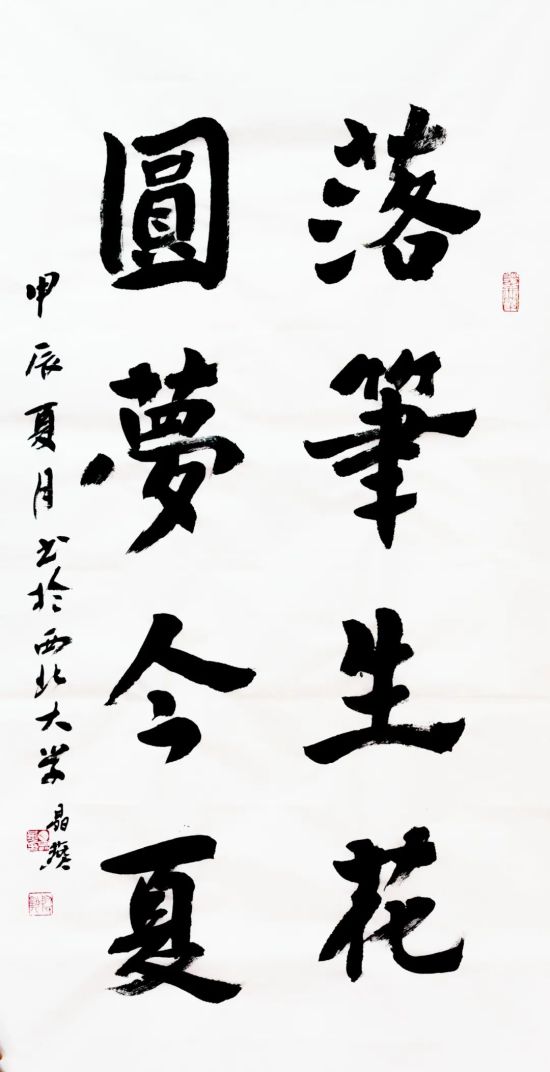 落筆生花
圓夢今夏
甲辰夏月书於西北大学